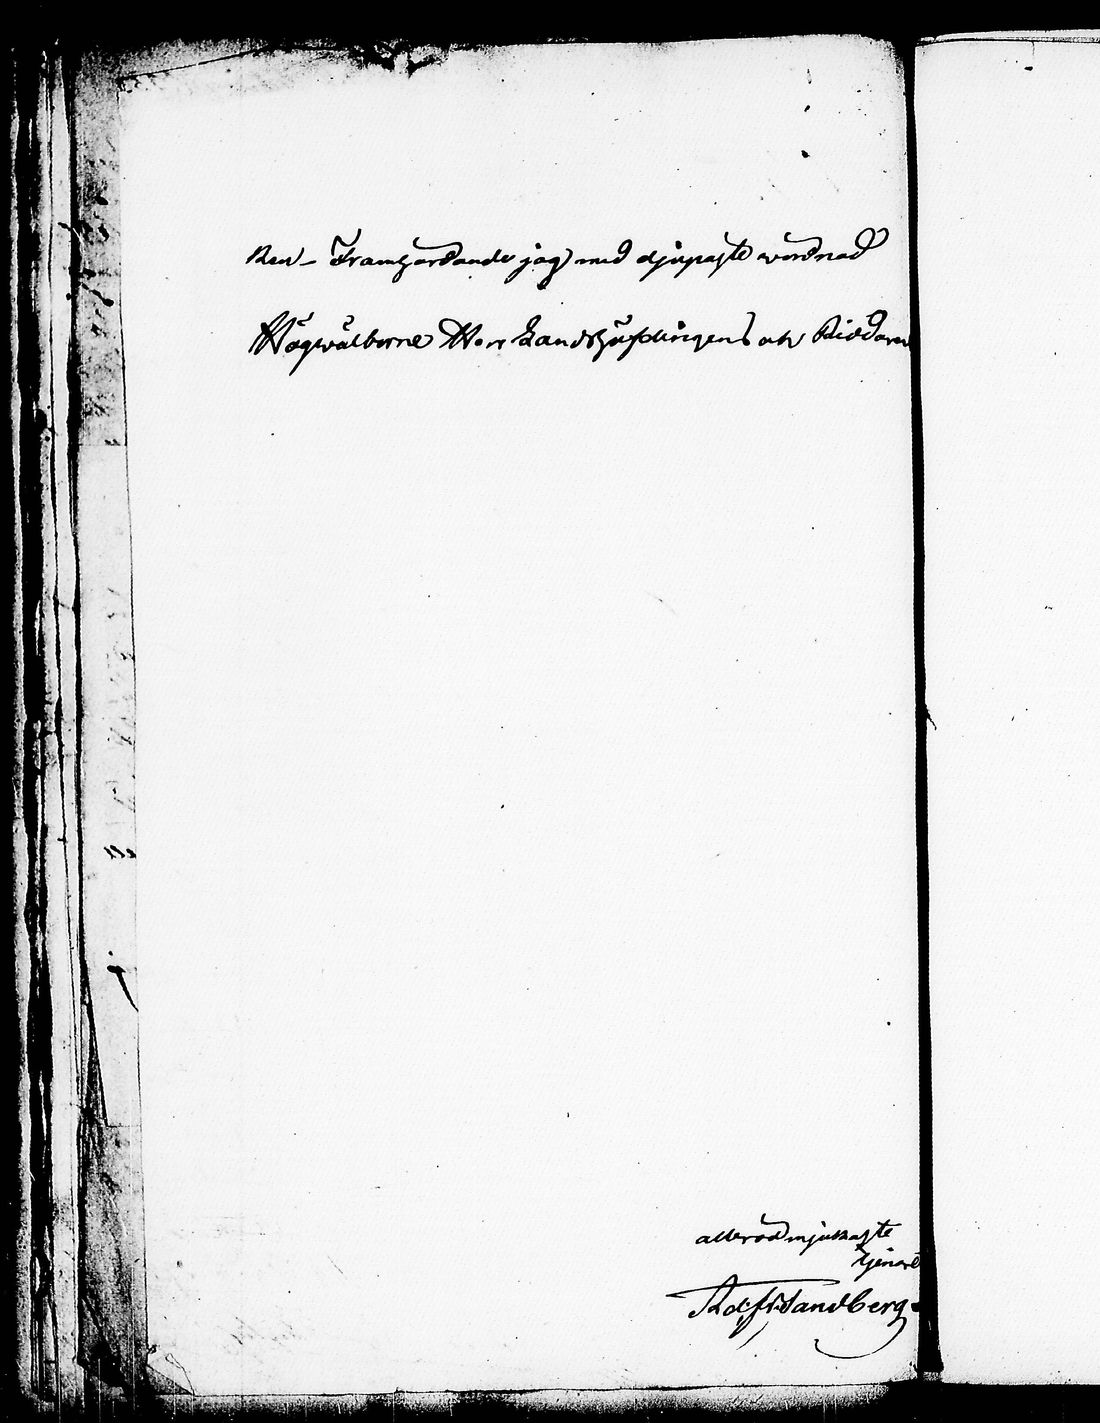 ren – Framhärdande jag med djupaste wördnad
Högwälborne Herr Landshöfdingens och Riddaren
allerödmjukaste
tjenare
Sandberg